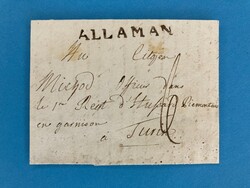 ALLAMAN
Au Citoyen
Michod Officier dans
le 1er Regt d'
en garnison
à Turin